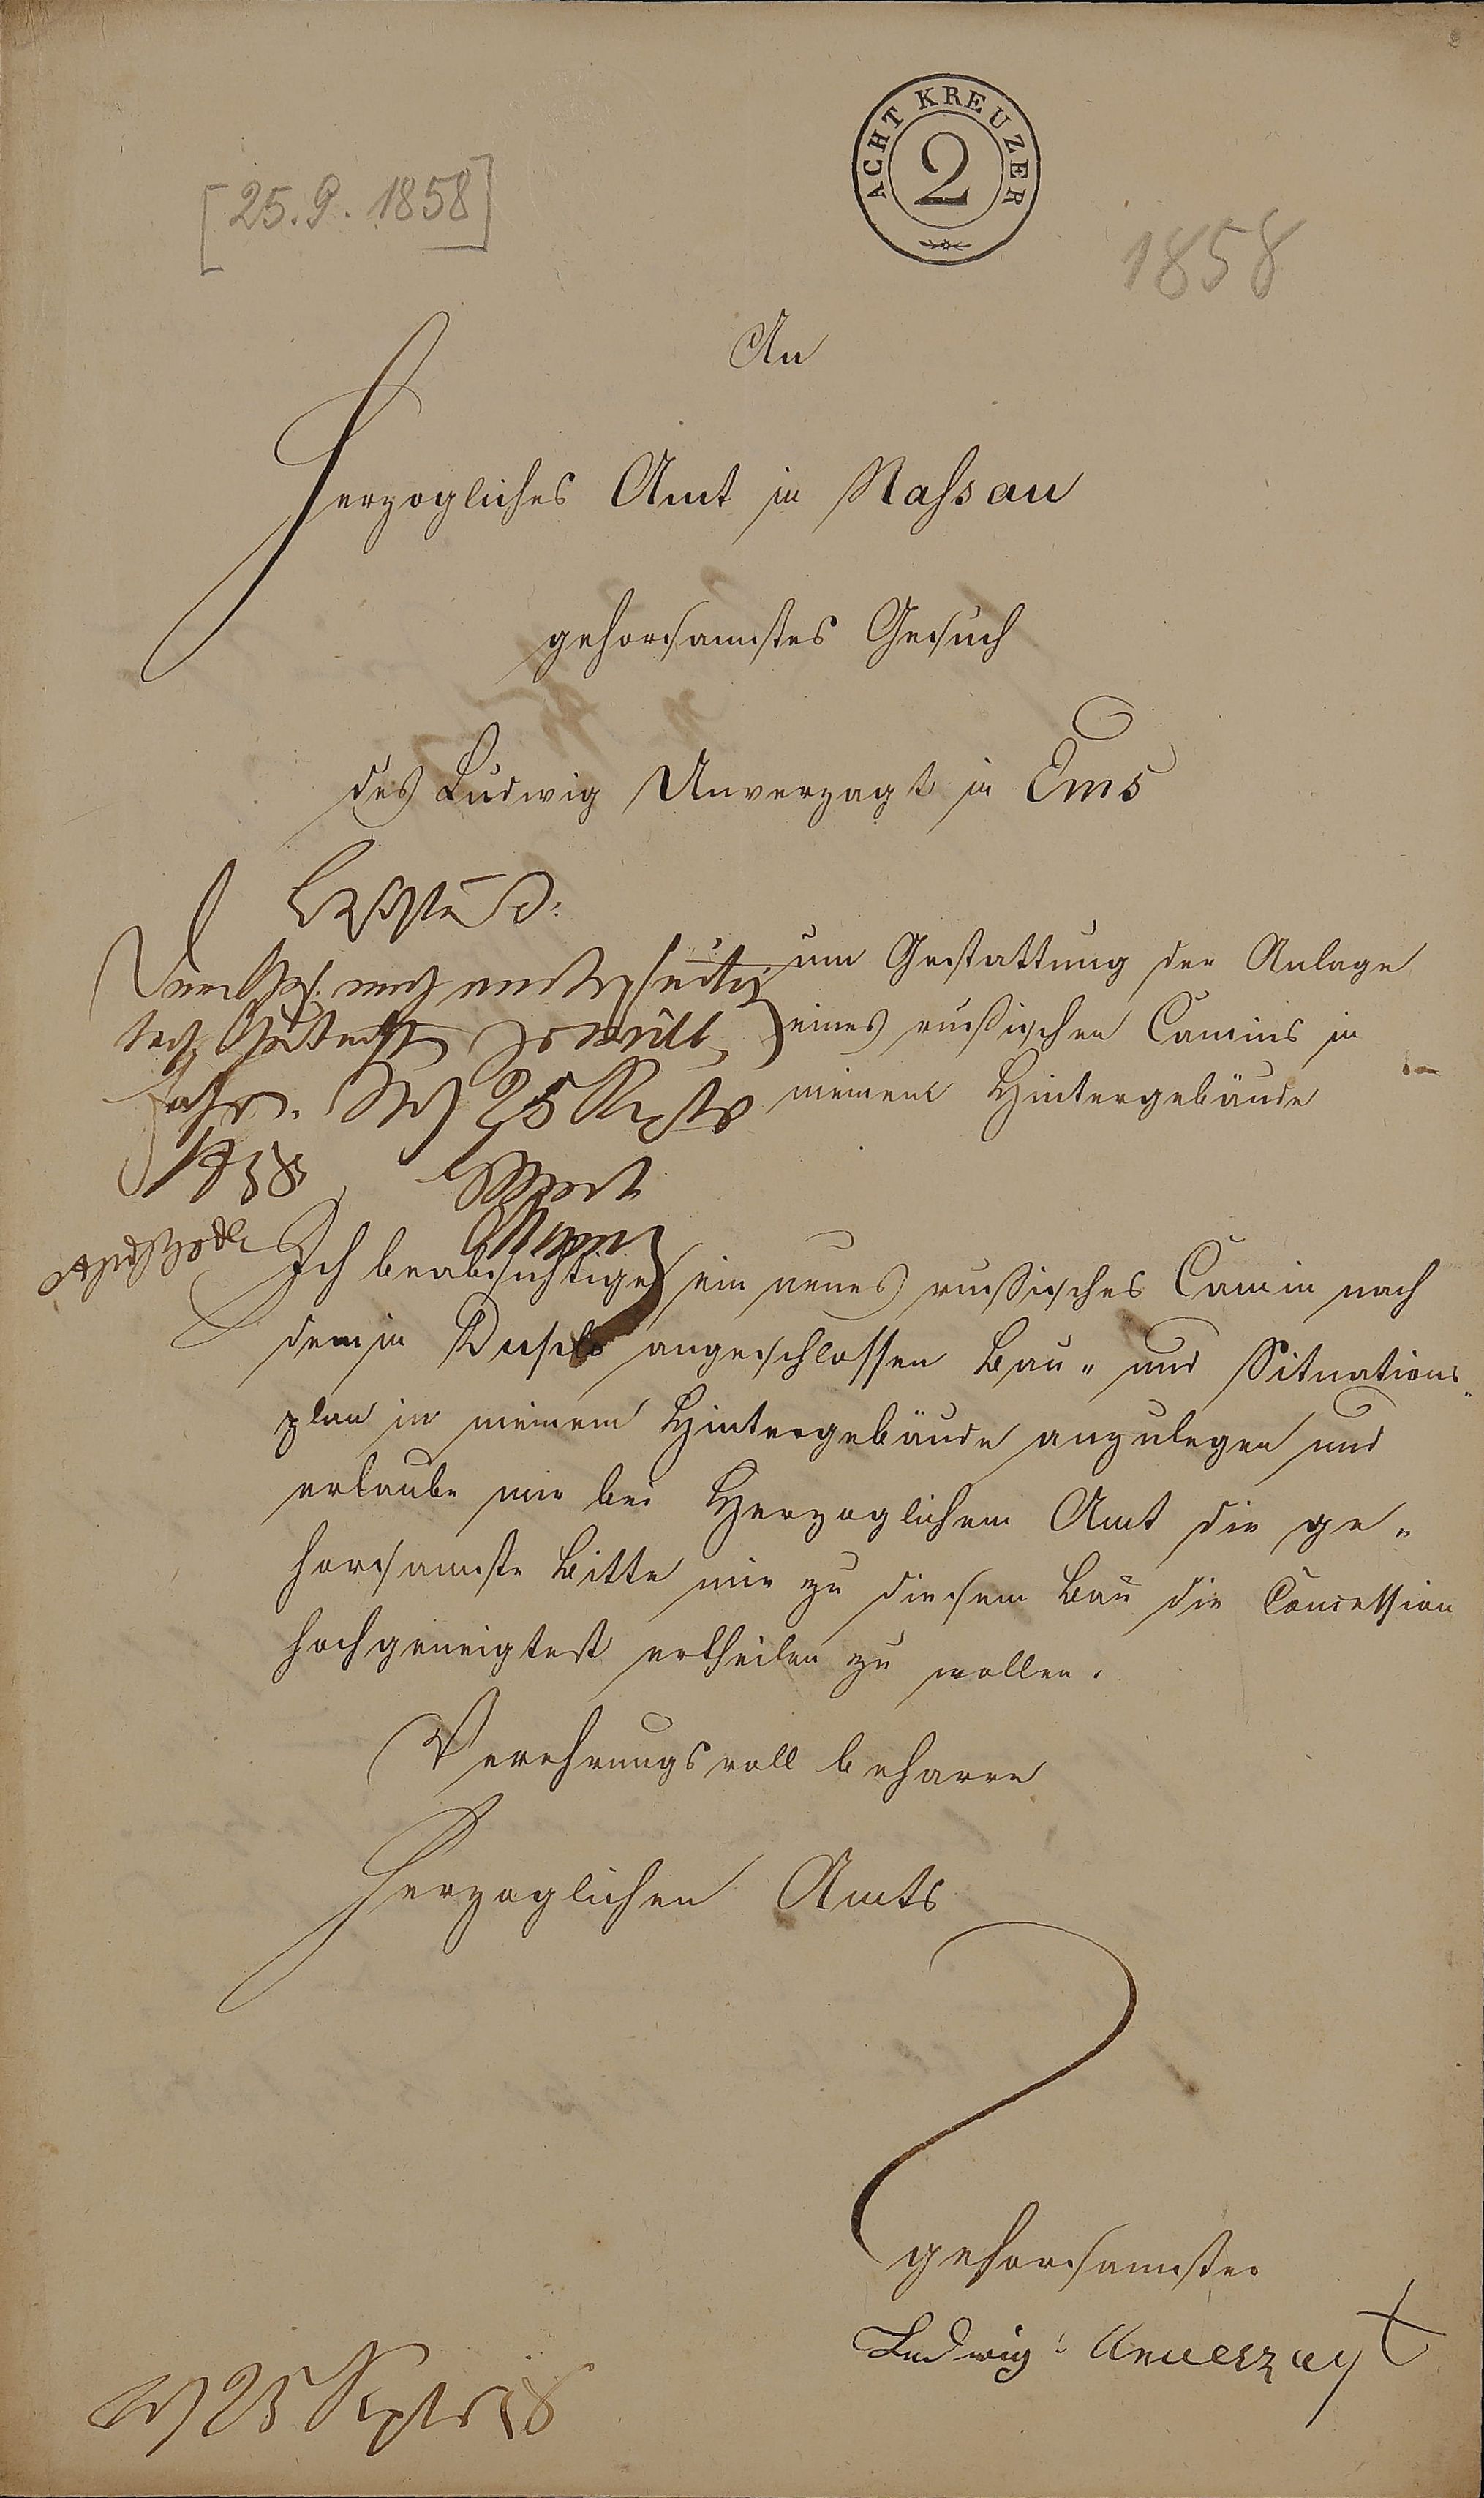 ACHT KREUZER
2
[25.9.1858]
1858
An
Herzogliches Amt in Nassau
gehorsamstes Gesuch
des Ludwig Unverzagt in Ems
um Gestattung der Anlage
eines russischen Camins in
meinem Hintergebäude
25 Septr
1858
Ich beabsichtige ein neues russisches Camin nach
dem in Duplo angeschlossen Bau- und Situations-
plan in meinem Hintergebäude anzulegen und
erlaube mir bei Herzoglichem Amt die ge-
horsamste Bitte mir zu diesem Bau die Concession
hochgeneigtest ertheilen zu wollen.
Verehrungsvoll beharre
Herzoglichen Amts
gehorsamster
Ludwig Unverzagt
25 Septr 58